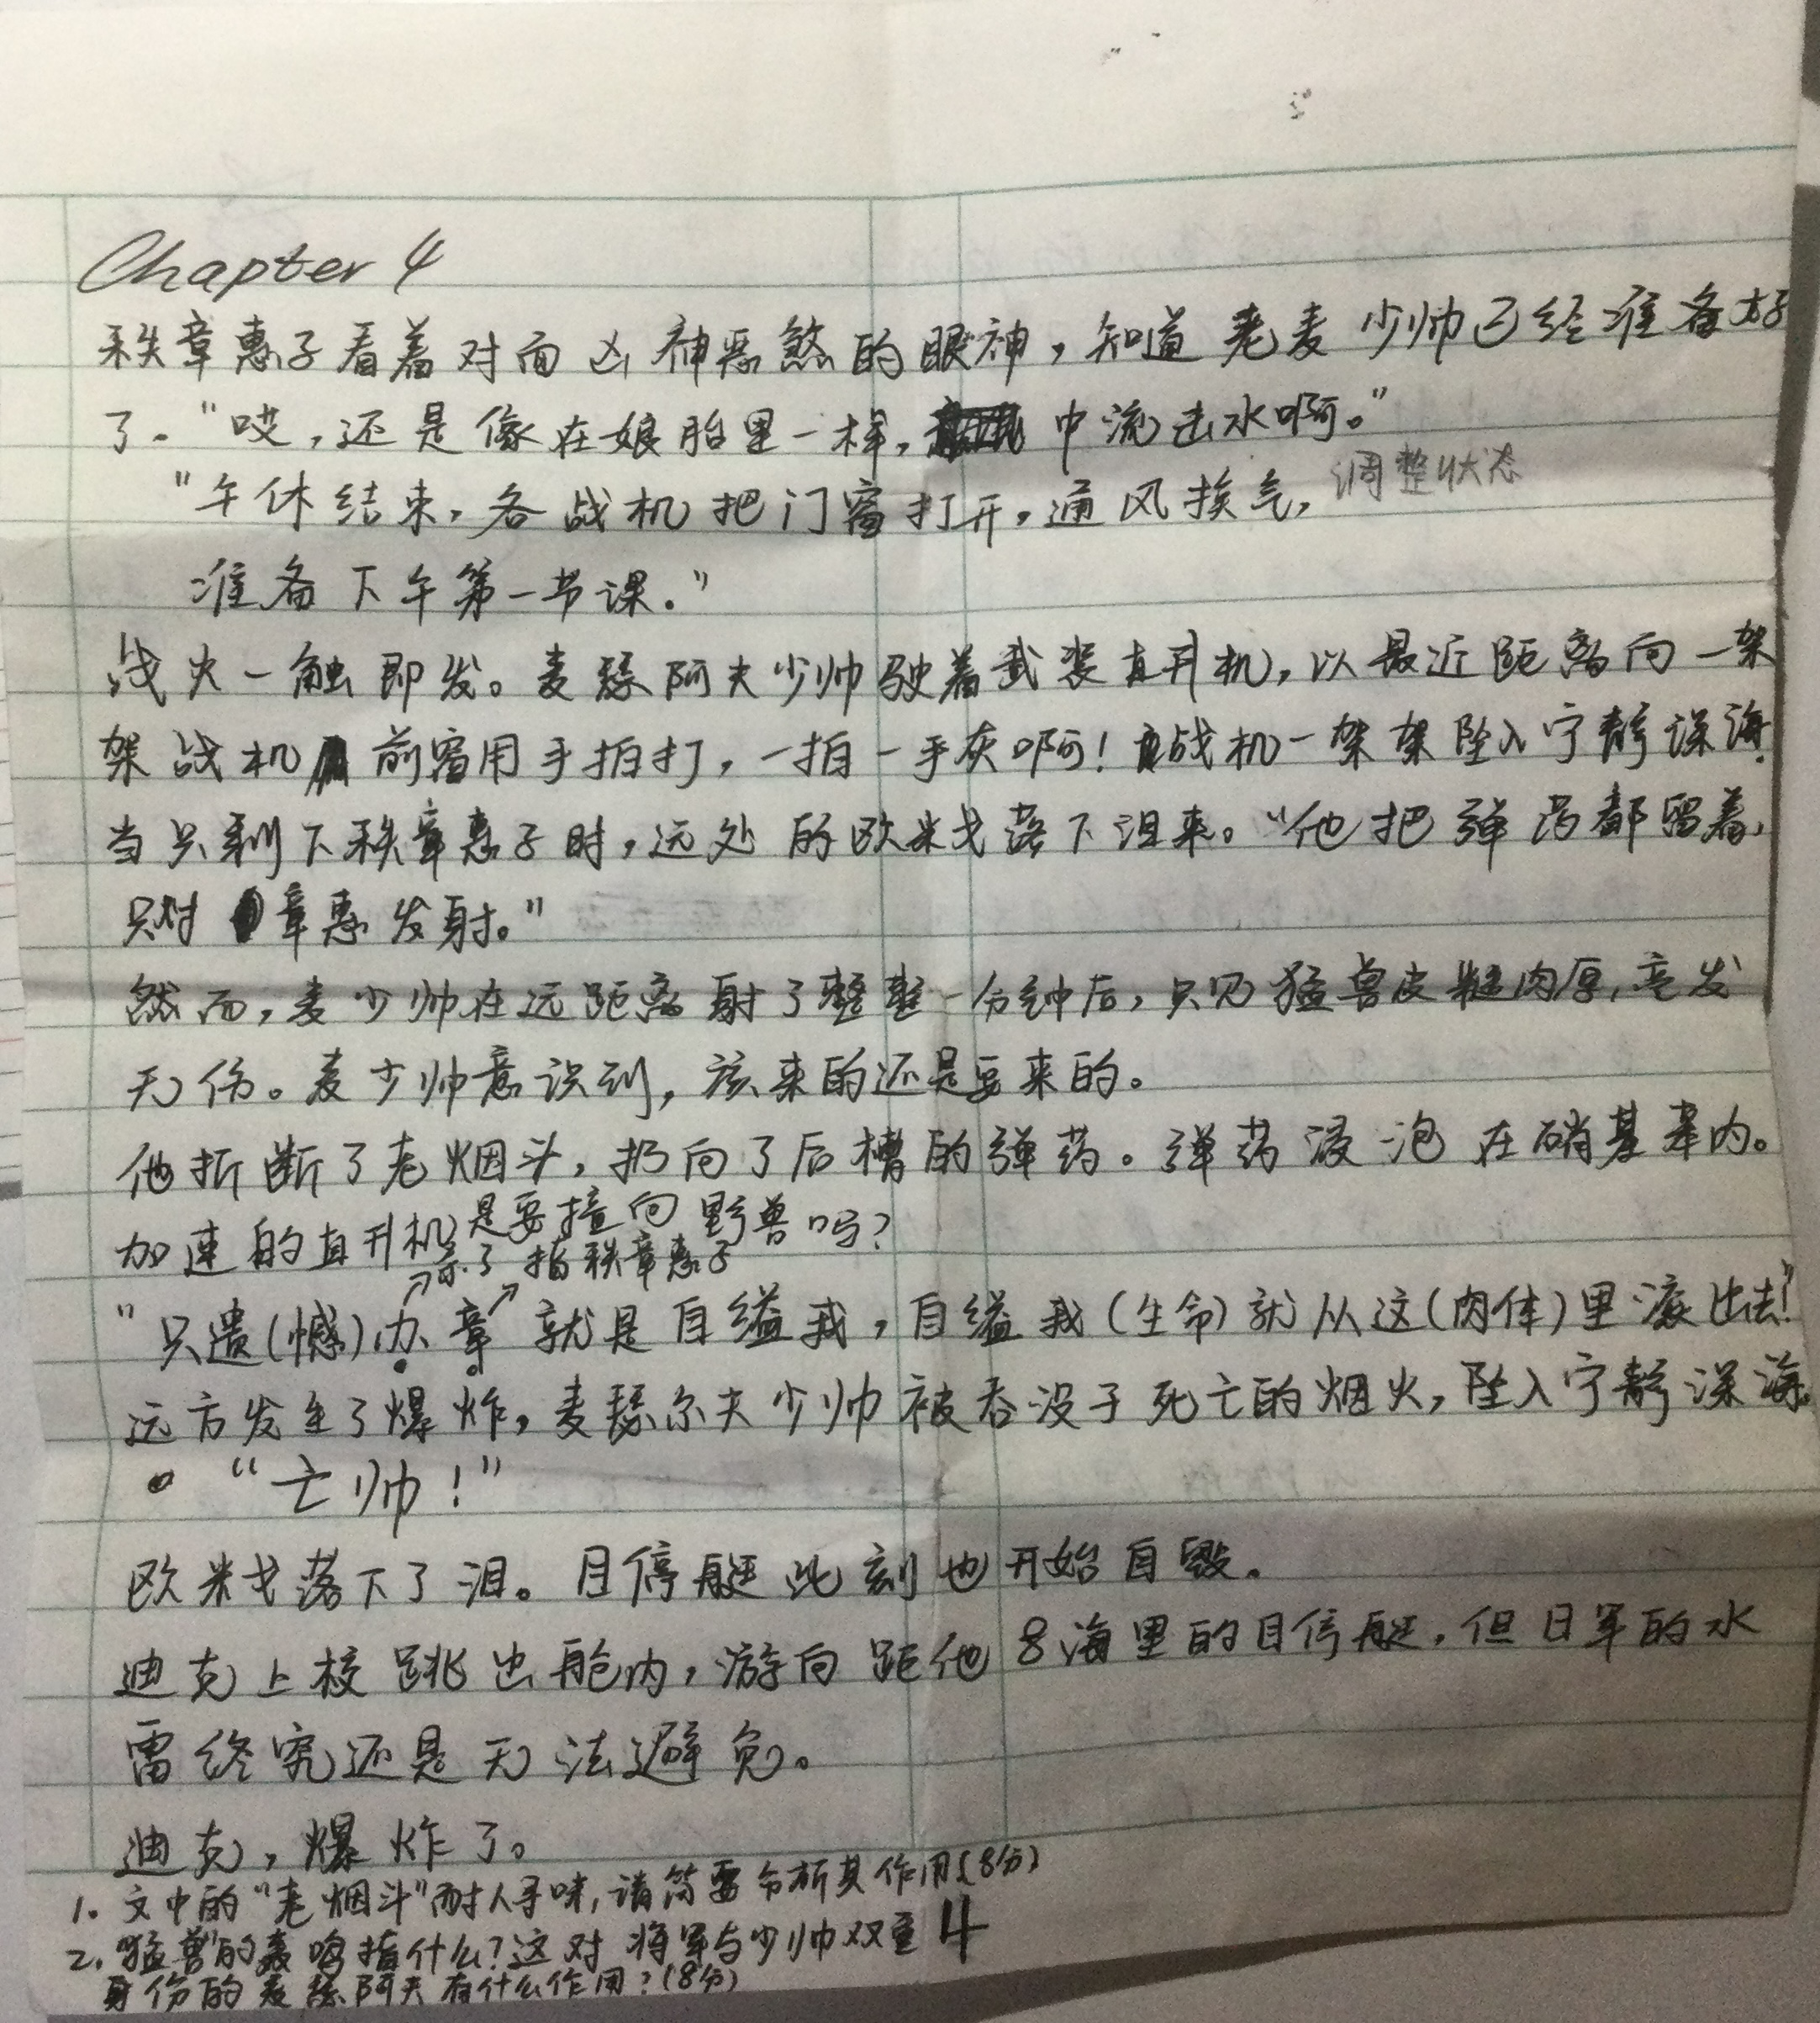 Chapter 4
秩章惠子看着对面凶神恶煞的眼神，知道老麦少帅已经准备好
了。“哎，还是像在娘胎里一样， 中流击水啊。”
“午休结束，各战机把门窗打开，通风换气，调整状态
准备下午第一节课.”
战火一触即发。麦瑟阿夫少帅驶着武装直升机，以最近距离向一架
架战机前窗用手拍打，一拍一手灰啊！战机一架架坠入宁静深海.
当只剩下秩章惠子时，远处的欧米戈落下泪来。“他把弹药都留着，
只对章惠发射。”
然而，麦少帅在远距离射了整整一分钟后，只见猛兽皮糙肉厚，毫发
无伤。麦少帅意识到，该来的还是要来的。
他折断了老烟斗，扔向了后槽的弹药。弹药浸泡在硝基苯内。
加速的直升机是要撞向野兽吗？
杀了 指秩章惠子
“只遗(憾)办章就是自缢我，自缢我(生命)就从这(肉体)里滚出去!”
远方发生了爆炸，麦瑟尔夫少帅被吞没于死亡的烟火，坠入宁静深海。
“亡帅！”
欧米戈落下了泪。目停艇此刻也开始自毁。
迪克上校跳出舱内，游向距他8海里的目停艇，但日军的水
雷终究还是无法避免。
迪克，爆炸了。
1. 文中的“老烟斗”耐人寻味，请简要分析其作用(8分)
2. “猛兽”的轰鸣指什么？这对将军与少帅双重
身份的麦瑟阿夫有什么作用？(8分)
4